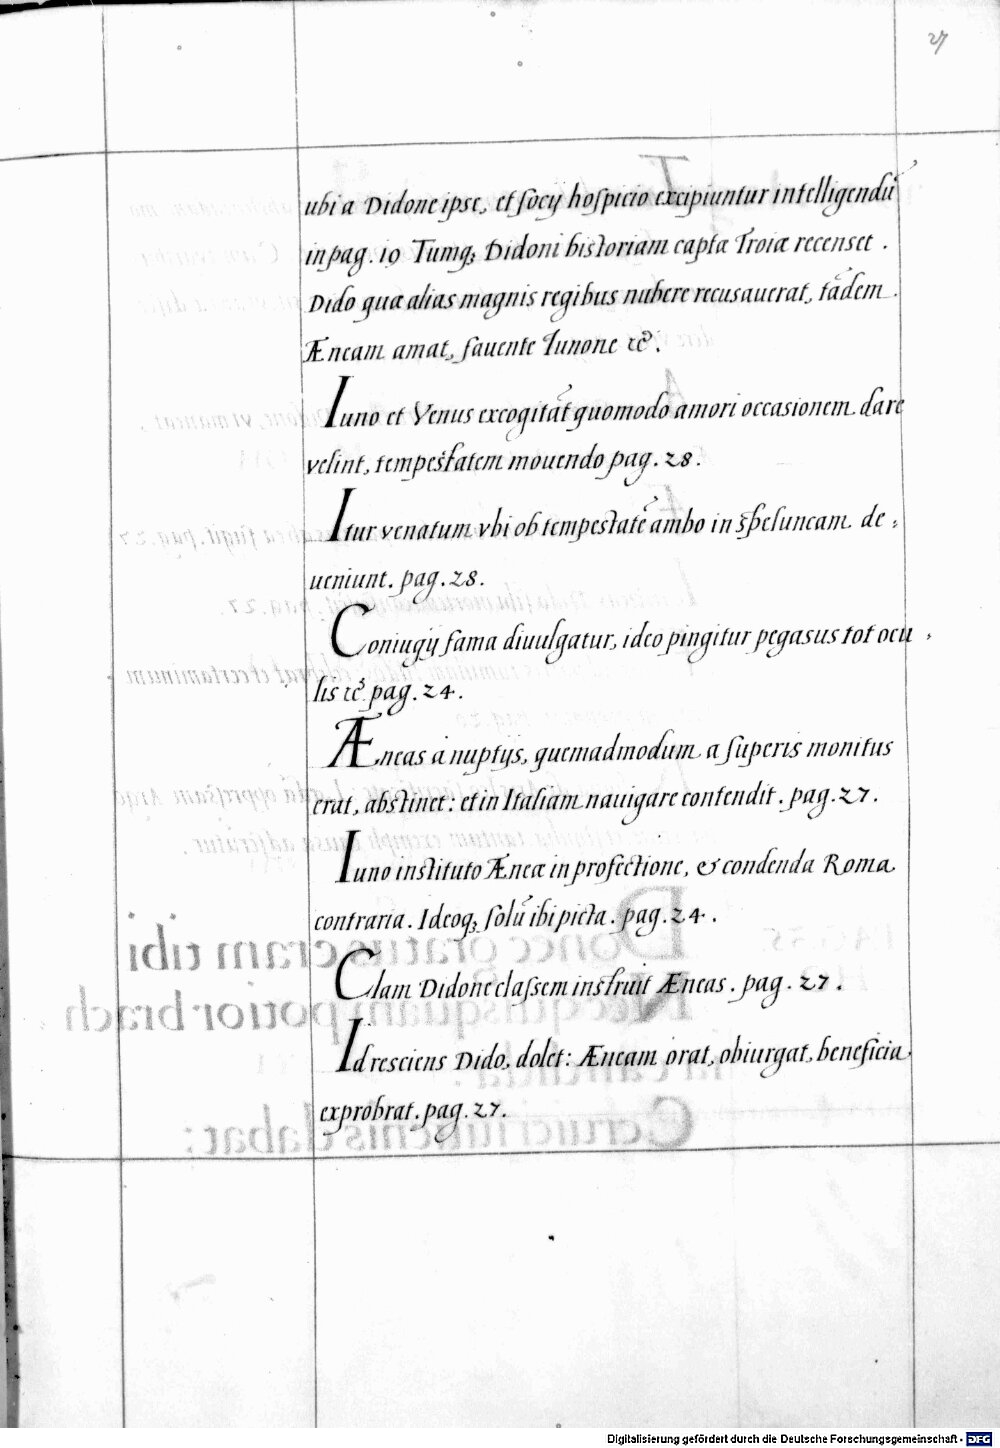 27
ubi a Didone ipse, et socij hospicio excipiuntur intelligendũ
in pag. 19 Tumq; Didoni historiam captæ Troiæ recenset.
Dido quæ alias magnis regibus nubere recusauerat, tãdem
Æneam amat, fauente Iunone &c.
Iuno et Venus excogitãt quomodo amori occasionem dare
velint, tempestatem mouendo pag. 28.
Itur venatum vbi ob tempestatẽ ambo in speluncam de:
ueniunt. pag. 28.
Coniugij fama diuulgatur, ideo pingitur pegasus tot ocu:
lis &c pag. 24.
Æneas à nuptijs, quemadmodum a superis monitus
erat, abstinet: et in Italiam nauigare contendit. pag. 27.
Iuno instituto Æneæ in profectione, & condenda Roma
contraria. Ideoq; solũ ibi picta. pag. 24.
Clam Didone classem instruit Æneas. pag. 27.
Id resciens Dido, dolet: Æneam orat, obiurgat, beneficia
exprobrat. pag. 27.
Digitalisierung gefördert durch die Deutsche Forschungsgemeinschaft - DFG